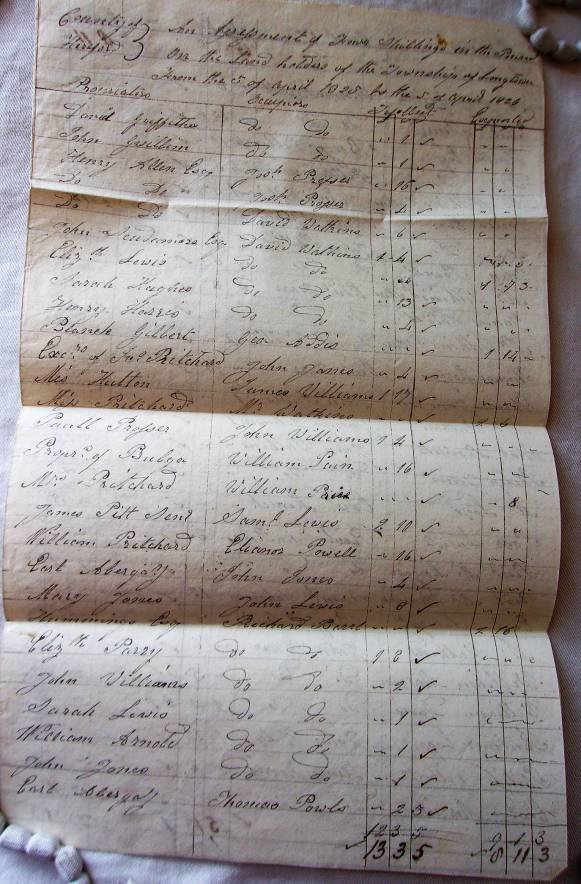 County of An Assessment of Four Shillings in the Pound
Hereford On the Land holders of the Township of Longtown
From the 5 of April 1825 to the 5 of April 1826
Proprietors Occupiers
David Griffiths Do Do " 1
John Do Do " 1
Henry Allen Esq Josh Prosser " 16
Do Do Josh Prosser " 4
Do Do David Watkins " 6
John Scudamore Esq David Watkins 1 4
Elizth Lewis Do Do
Sarah Hughes Do Do " 13
Henry Harris Do Do " 4
Blanch Gilbert Geo Addis 1 14
Excrs of Jno Pritchard John James " 4
Miss Hutton James Williams 1 17
Miss Pritchard Mr Watkins
Paull Prosser John Williams 1 4
Propr of Bulga William Pain " 16
Mrs Pritchard William Price " " " 8
James Pitt Senr Saml Lewis 2 10
William Pritchard Elianor Powell " 16
Earl Abergay John Jones " 4
Mary Jones John Lewis " 8
Esq Richard
Elizth Parry Do Do 1 8
John Williams Do Do " 2
Sarah Lewis Do Do " 1
William Arnold Do Do " 1
John Jones Do Do " 1
Earl Abergay Thomas Powls " 2 5
12 3 5 9 1 3
13 3 5 8 11 3